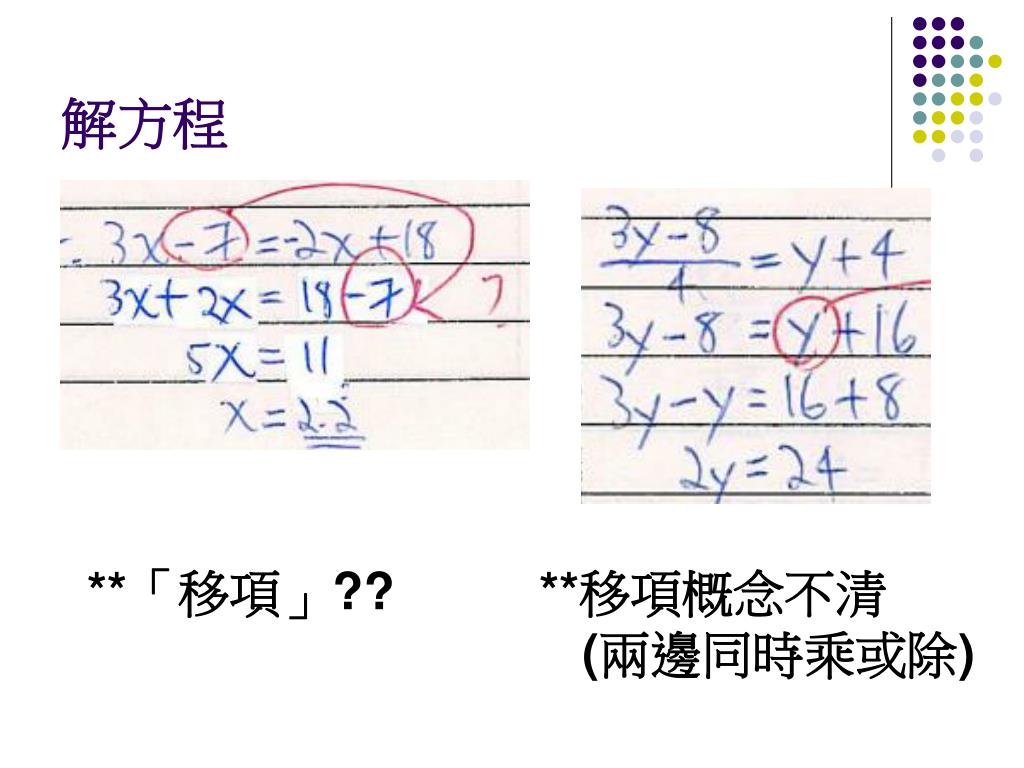 解方程
∴ 3x-7=-2x+18
3x+2x=18-7 ?
5x=11
x=2.2
(3y-8)/4=y+4
3y-8=y+16
3y-y=16+8
2y=24
**「移項」??
**移項概念不清
(兩邊同時乘或除)